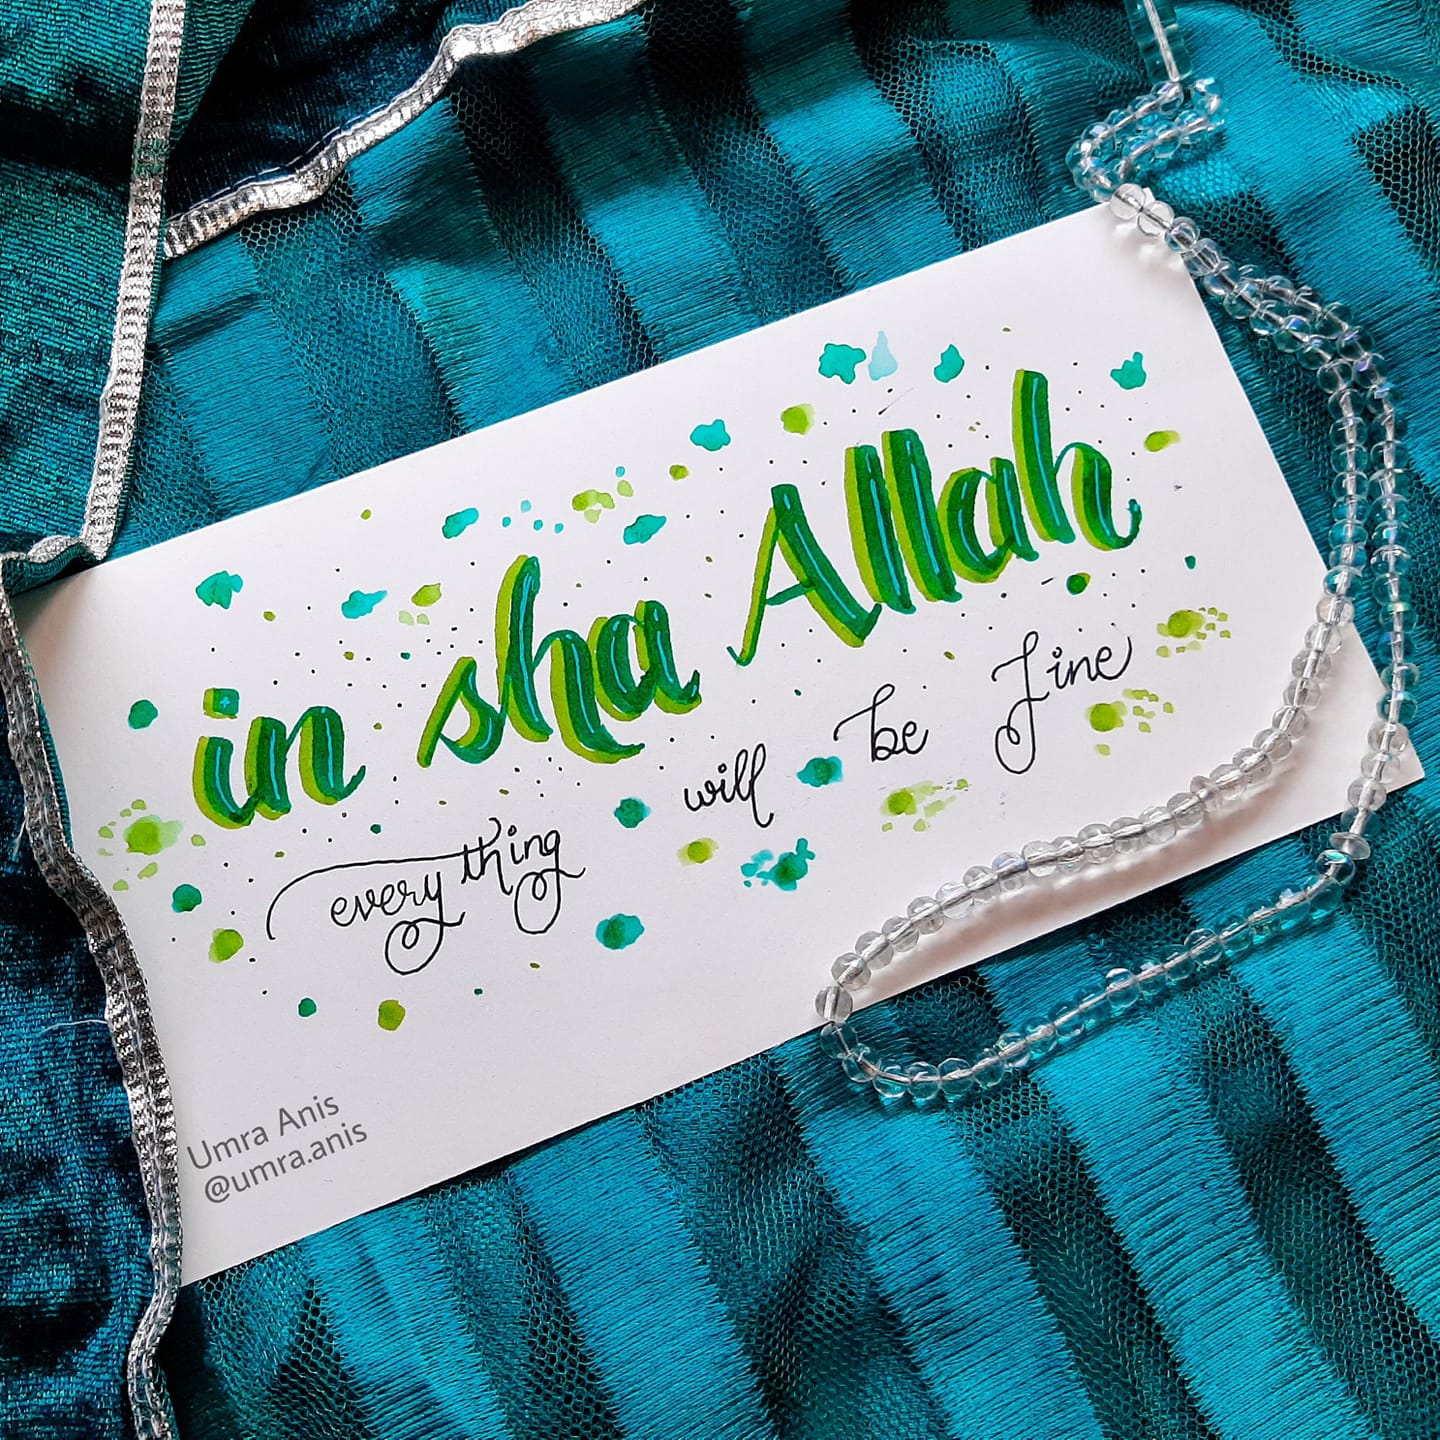 in sha Allah
every thing will be fine
Umra Anis
@umra.anis